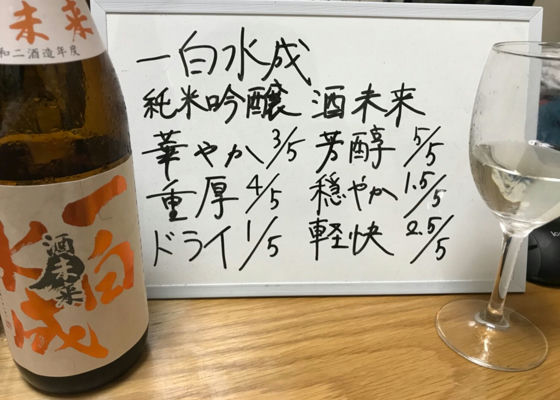 未来
和二酒造年度
一白水成
酒未来
一白水成
純米吟醸 酒未来
華やか 3/5 芳醇 5/5
重厚 4/5 穏やか 1.5/5
ドライ 1/5 軽快 2.5/5